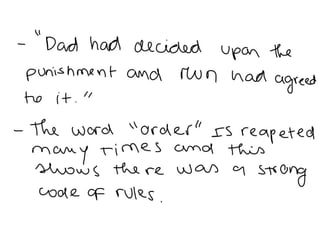 - "Dad had decided upon the
punishment and Mum had agreed
to it."
- The word "order" IS reapeted
many times and this
shows there was a strong
code of rules.